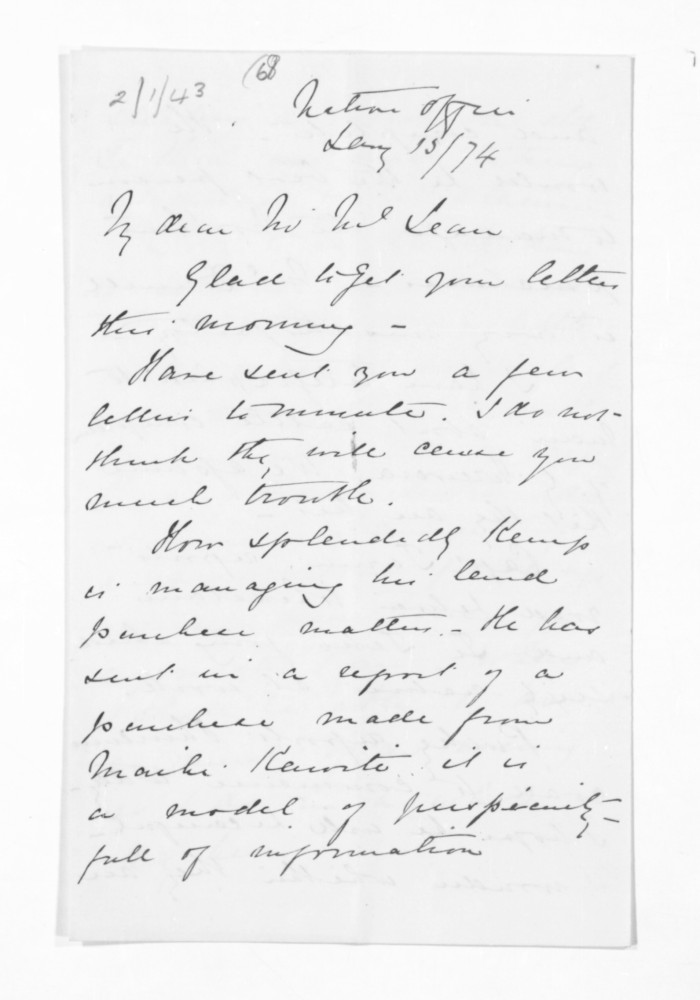 2/1/43
(68
Native Office
Jany 13/74
My dear Mr McLean
Glad to get your letters
this morning -
Have sent you a few
letters to minute. I do not
think they will cause you
much trouble.
How splendidly Kemp
is managing his land
purchase matters. - He has
sent in a report of a
purchase made from
Maihi Kawiti it is
a model of perspicuity -
full of information